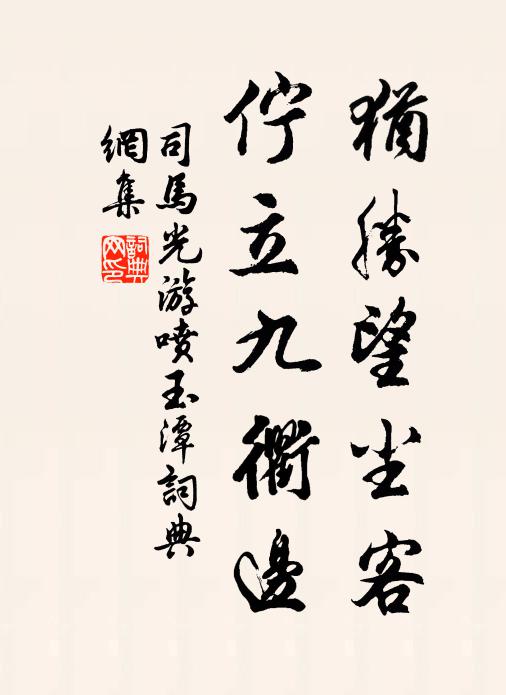 猶勝望尘客
佇立九衢邊
司馬光游喷玉潭詞典
網集
詞典
网印